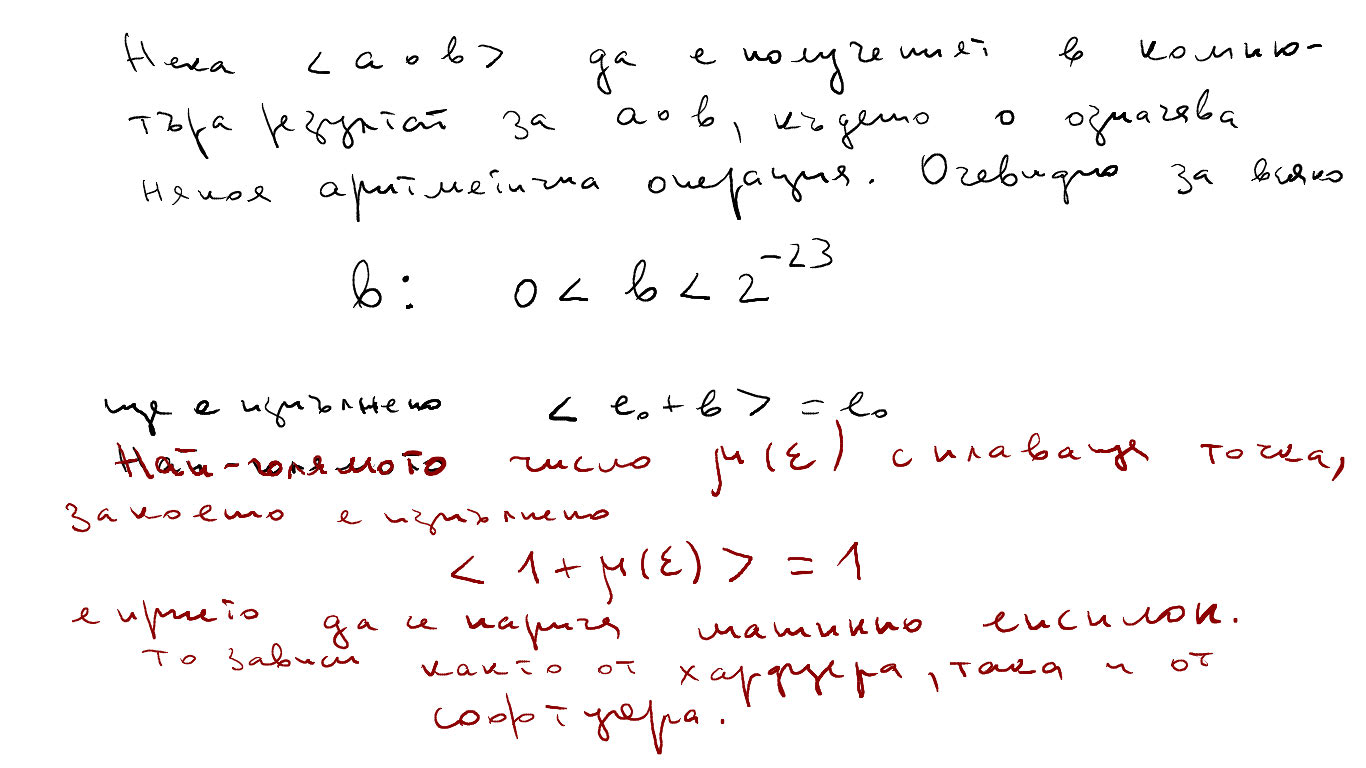 Нека < a o b > да е полученият в компю-
търа резултат за a o b, където o означава
някоя аритметична операция. Очевидно за всяко
b: 0 < b < 2^{-23}
ще е изпълнено < e₀ + b > = e₀
Най-голямото число μ(ε) с плаваща точка,
за което е изпълнено
< 1 + μ(ε) > = 1
е прието да се нарича машинно епсилон.
То зависи както от хардуера, така и от
софтуера.